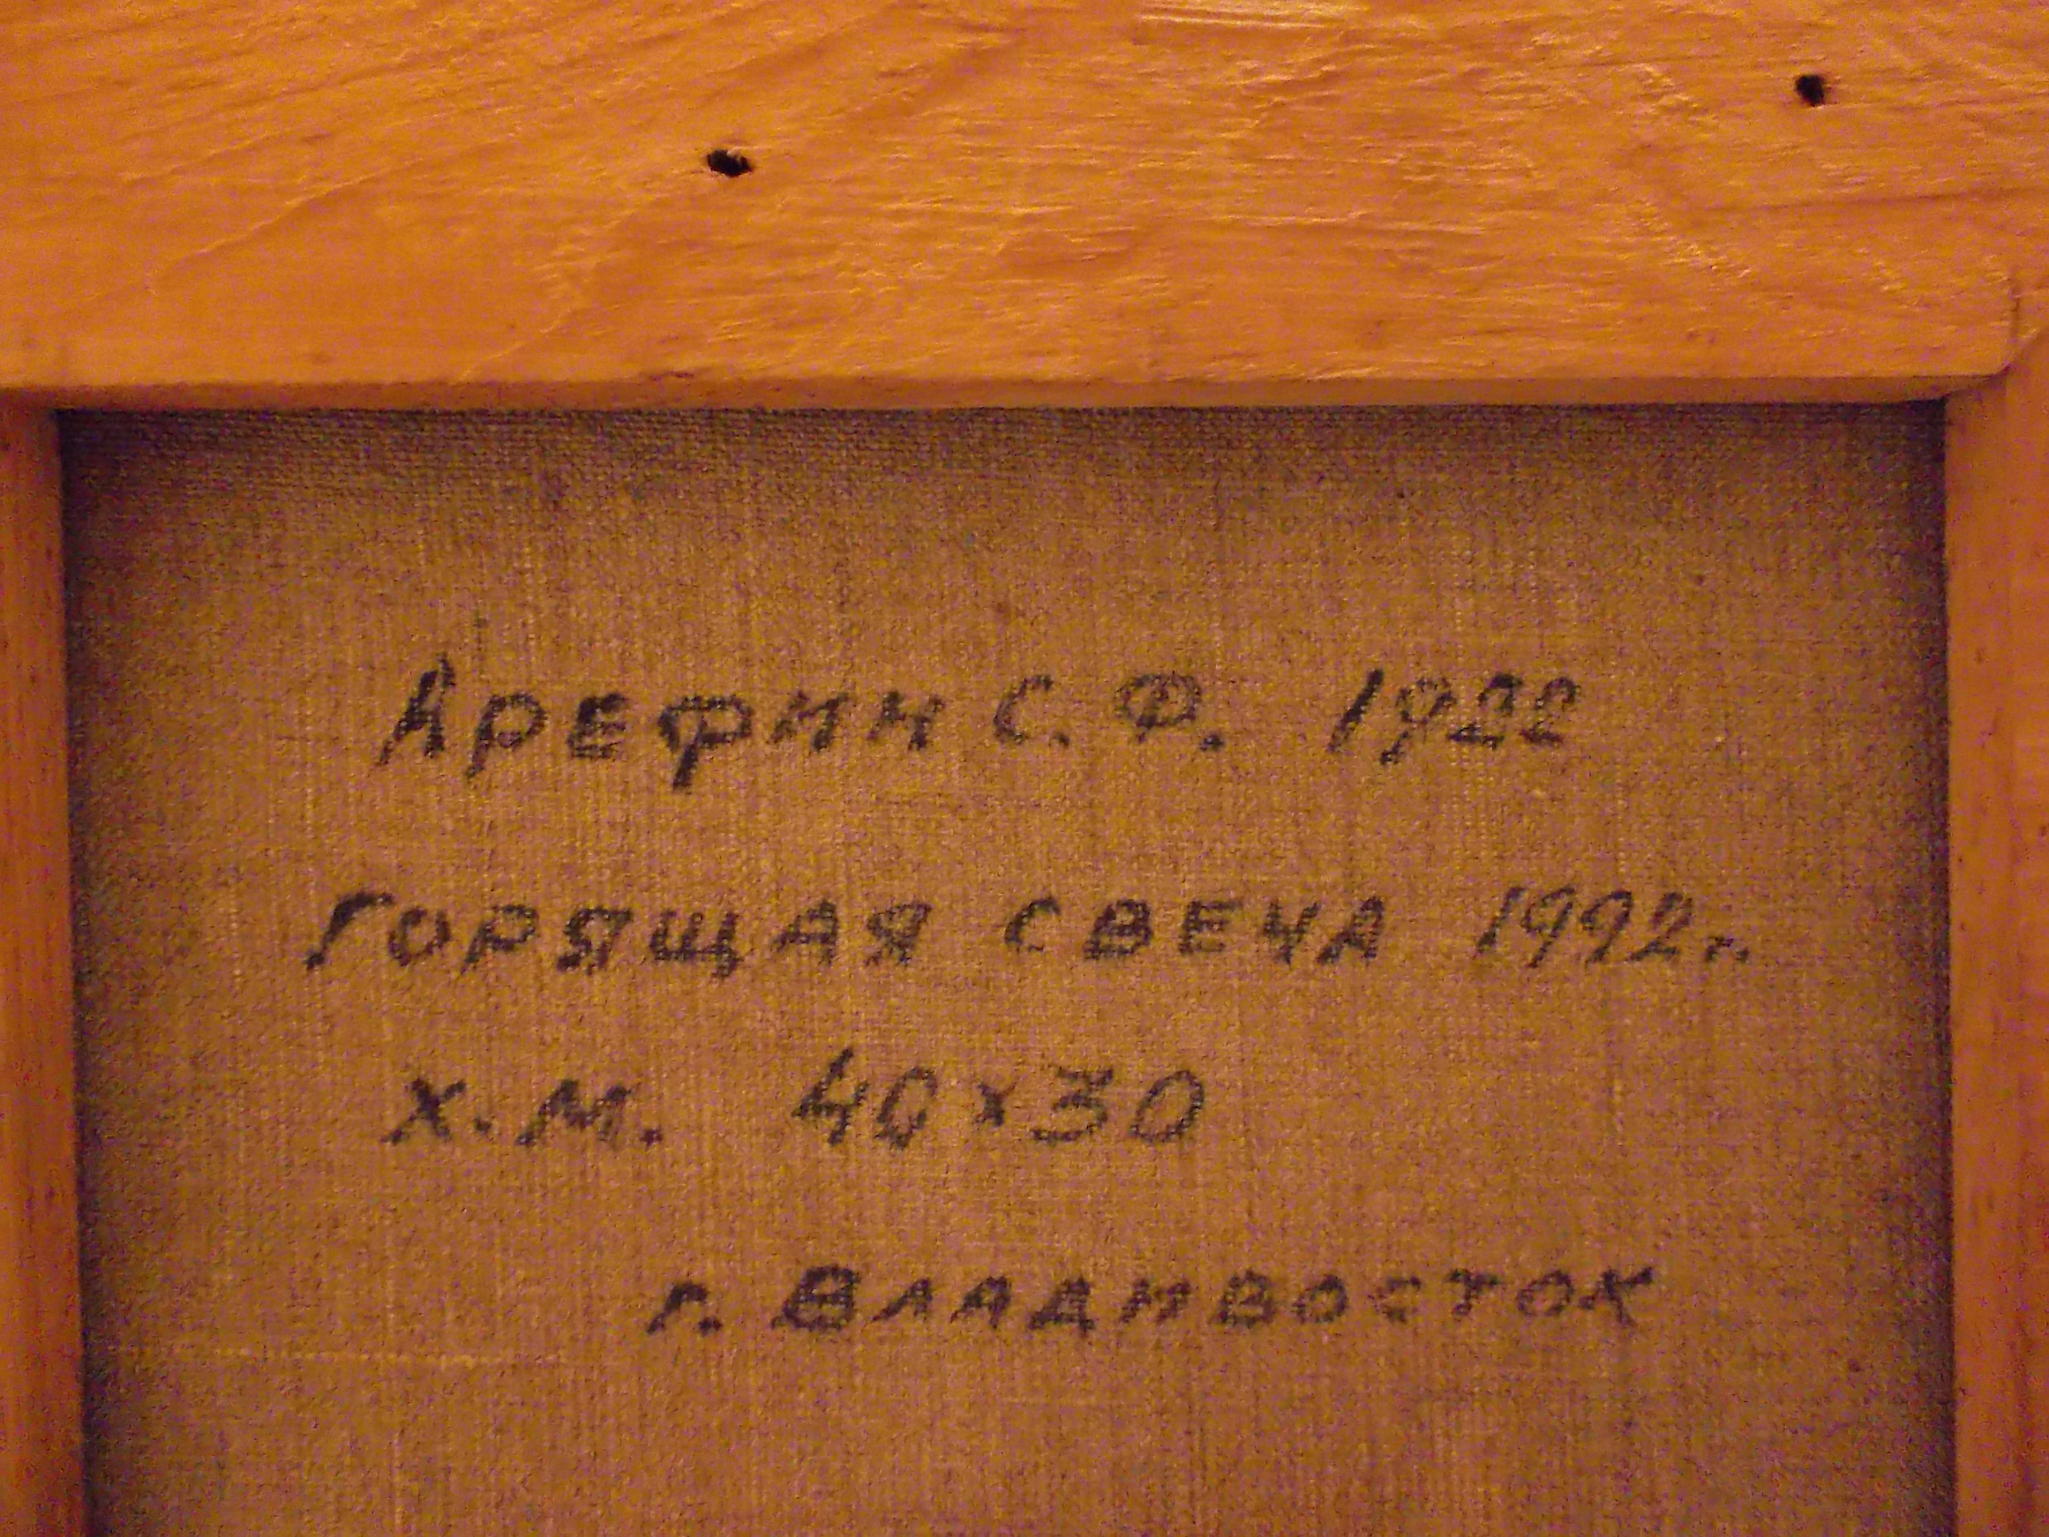 Арефин С. Ф. 1922
ГОРЯЩАЯ СВЕЧА 1992 г.
х.м. 40×30
г. Владивосток